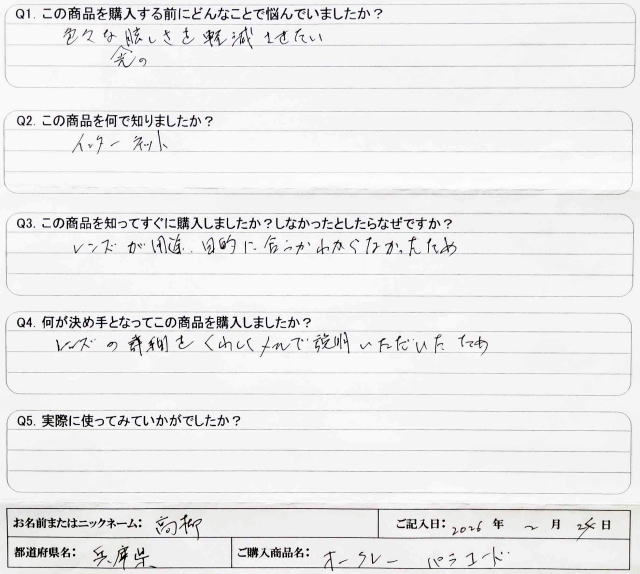 Q1. この商品を購入する前にどんなことで悩んでいましたか？
色々な眩しさを軽減させたい
光の
Q2. この商品を何で知りましたか？
インターネット
Q3. この商品を知ってすぐに購入しましたか？しなかったとしたらなぜですか？
レンズが用途、目的に合うかわからなかったため
Q4. 何が決め手となってこの商品を購入しましたか？
レンズの詳細をくわしくメールで説明いただいたため
Q5. 実際に使ってみていかがでしたか？
お名前またはニックネーム： 高柳 ご記入日： 2026 年 2 月 日
都道府県名： 兵庫県 ご購入商品名： オークレー パラコード